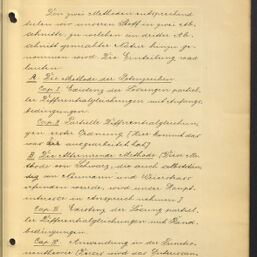 Den zwei Methoden entsprechend
teilen wir unseren Stoff in zwei Ab-
schnitte, zu welchen ein dritter Ab-
schnitt gemischter Natur hinzuge-
nommen wird. Die Einteilung wird
lauten
A. Die Methode der Potenzreihen
Cap. I. Existenz der Lösungen partiel-
ler Differentialgleichungen mit Anfangs-
bedingungen.
Cap. II. Partielle Differentialgleichun-
gen erster Ordnung (Hier kommt das
was ausgearbeitet hat)
B. Die Alternirende Methode (Diese Me-
thode von Schwarz, die auch selbständig
von Neumann und Weierstrass
erfunden wurde, wird unser Haupt-
interesse in Anspruch nehmen)
Cap. III. Existenz der Lösung partiel-
ler Differentialgleichungen mit Rand-
bedingungen.
Cap. IV. Anwendung in der Functio-
nentheorie (Dieses wird das